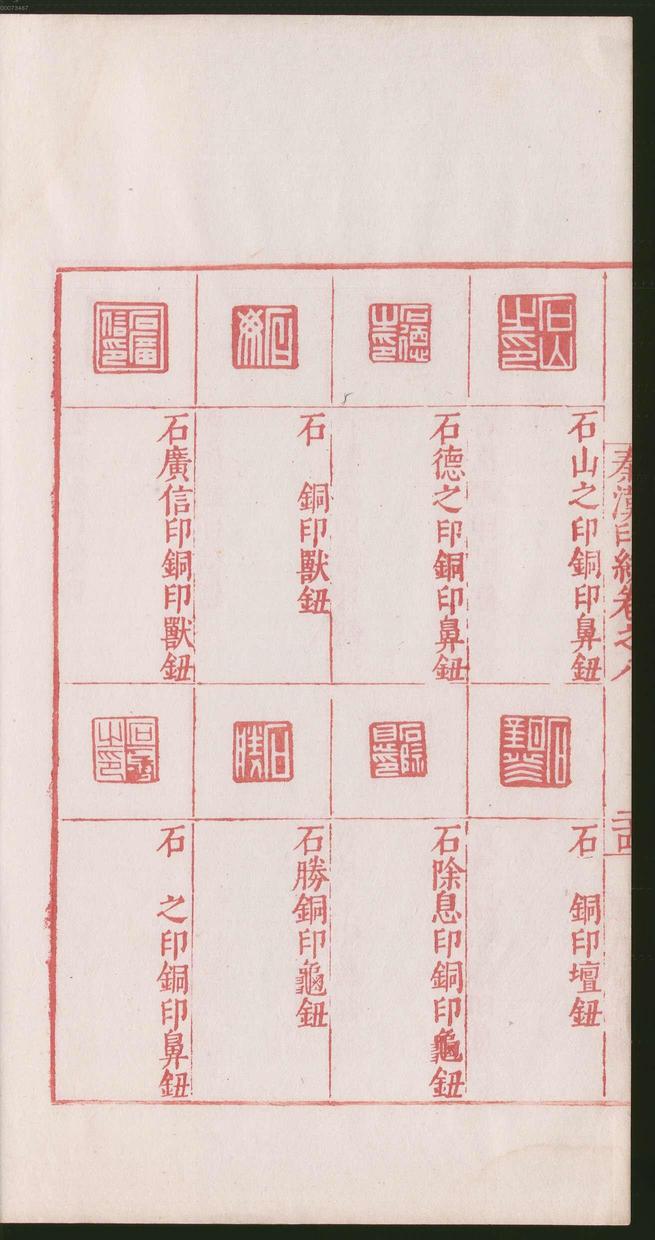 00073467
秦漢印統卷之八
石山之印銅印鼻鈕
石德之印銅印鼻鈕
石 銅印獸鈕
石廣信印銅印獸鈕
石 銅印壇鈕
石除息印銅印龜鈕
石勝銅印龜鈕
石 之印銅印鼻鈕